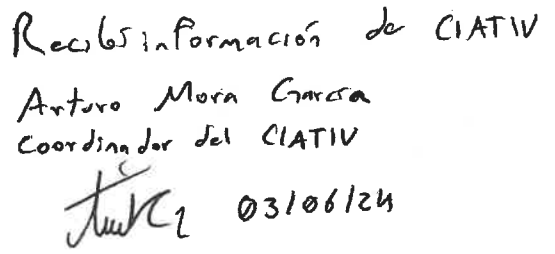 Recibí información de CIATIV
Arturo Mora García
Coordinador del CIATIV
03/06/24